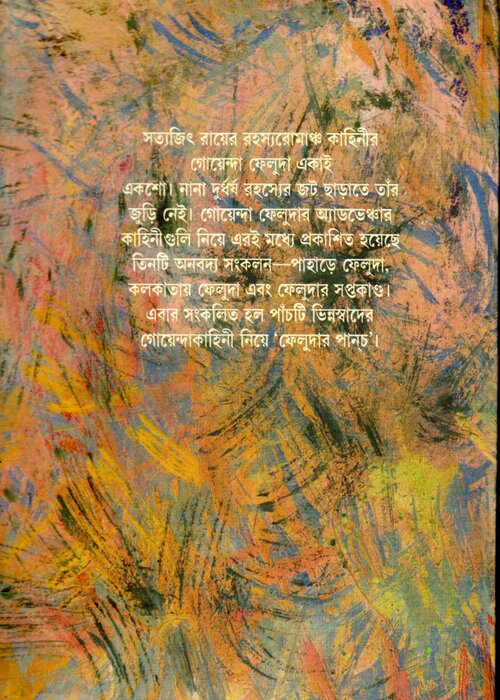 সত্যজিৎ রায়ের রহস্যরোমাঞ্চ কাহিনীর
গোয়েন্দা ফেলুদা একাই
একশো। নানা দুর্ধর্ষ রহস্যের জট ছাড়াতে তাঁর
জুড়ি নেই। গোয়েন্দা ফেলুদার অ্যাডভেঞ্চার
কাহিনীগুলি নিয়ে এরই মধ্যে প্রকাশিত হয়েছে
তিনটি অনবদ্য সংকলন—পাহাড়ে ফেলুদা,
কলকাতায় ফেলুদা এবং ফেলুদার সপ্তকাণ্ড।
এবার সংকলিত হল পাঁচটি ভিন্নস্বাদের
গোয়েন্দাকাহিনী নিয়ে ‘ফেলুদার পানচ’।